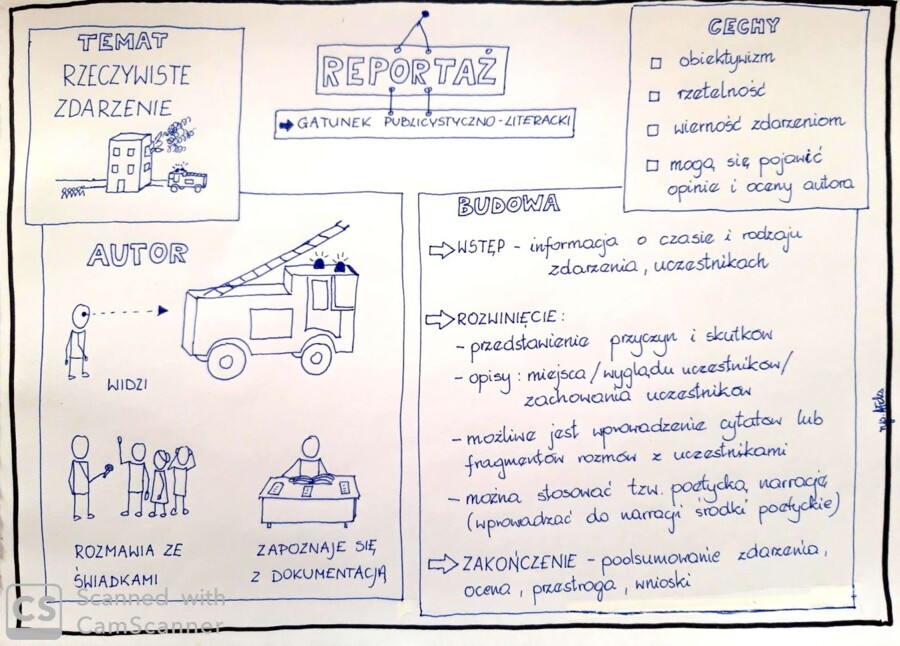 TEMAT
RZECZYWISTE
ZDARZENIE
REPORTAŻ
GATUNEK PUBLICYSTYCZNO-LITERACKI
CECHY
obiektywizm
rzetelność
wierność zdarzeniom
mogą się pojawić
opinie i oceny autora
AUTOR
WIDZI
ROZMAWIA ZE
ŚWIADKAMI
ZAPOZNAJE SIĘ
Z DOKUMENTACJĄ
BUDOWA
WSTĘP - informacja o czasie i rodzaju
zdarzenia, uczestnikach
ROZWINIĘCIE:
- przedstawienie przyczyn i skutków
- opisy: miejsca/wyglądu uczestników/
zachowania uczestników
- możliwe jest wprowadzenie cytatów lub
fragmentów rozmów z uczestnikami
- można stosować tzw. poetycką narrację
(wprowadzać do narracji środki poetyckie)
ZAKOŃCZENIE - podsumowanie zdarzenia,
ocena, przestroga, wnioski
CS Scanned with
CamScanner